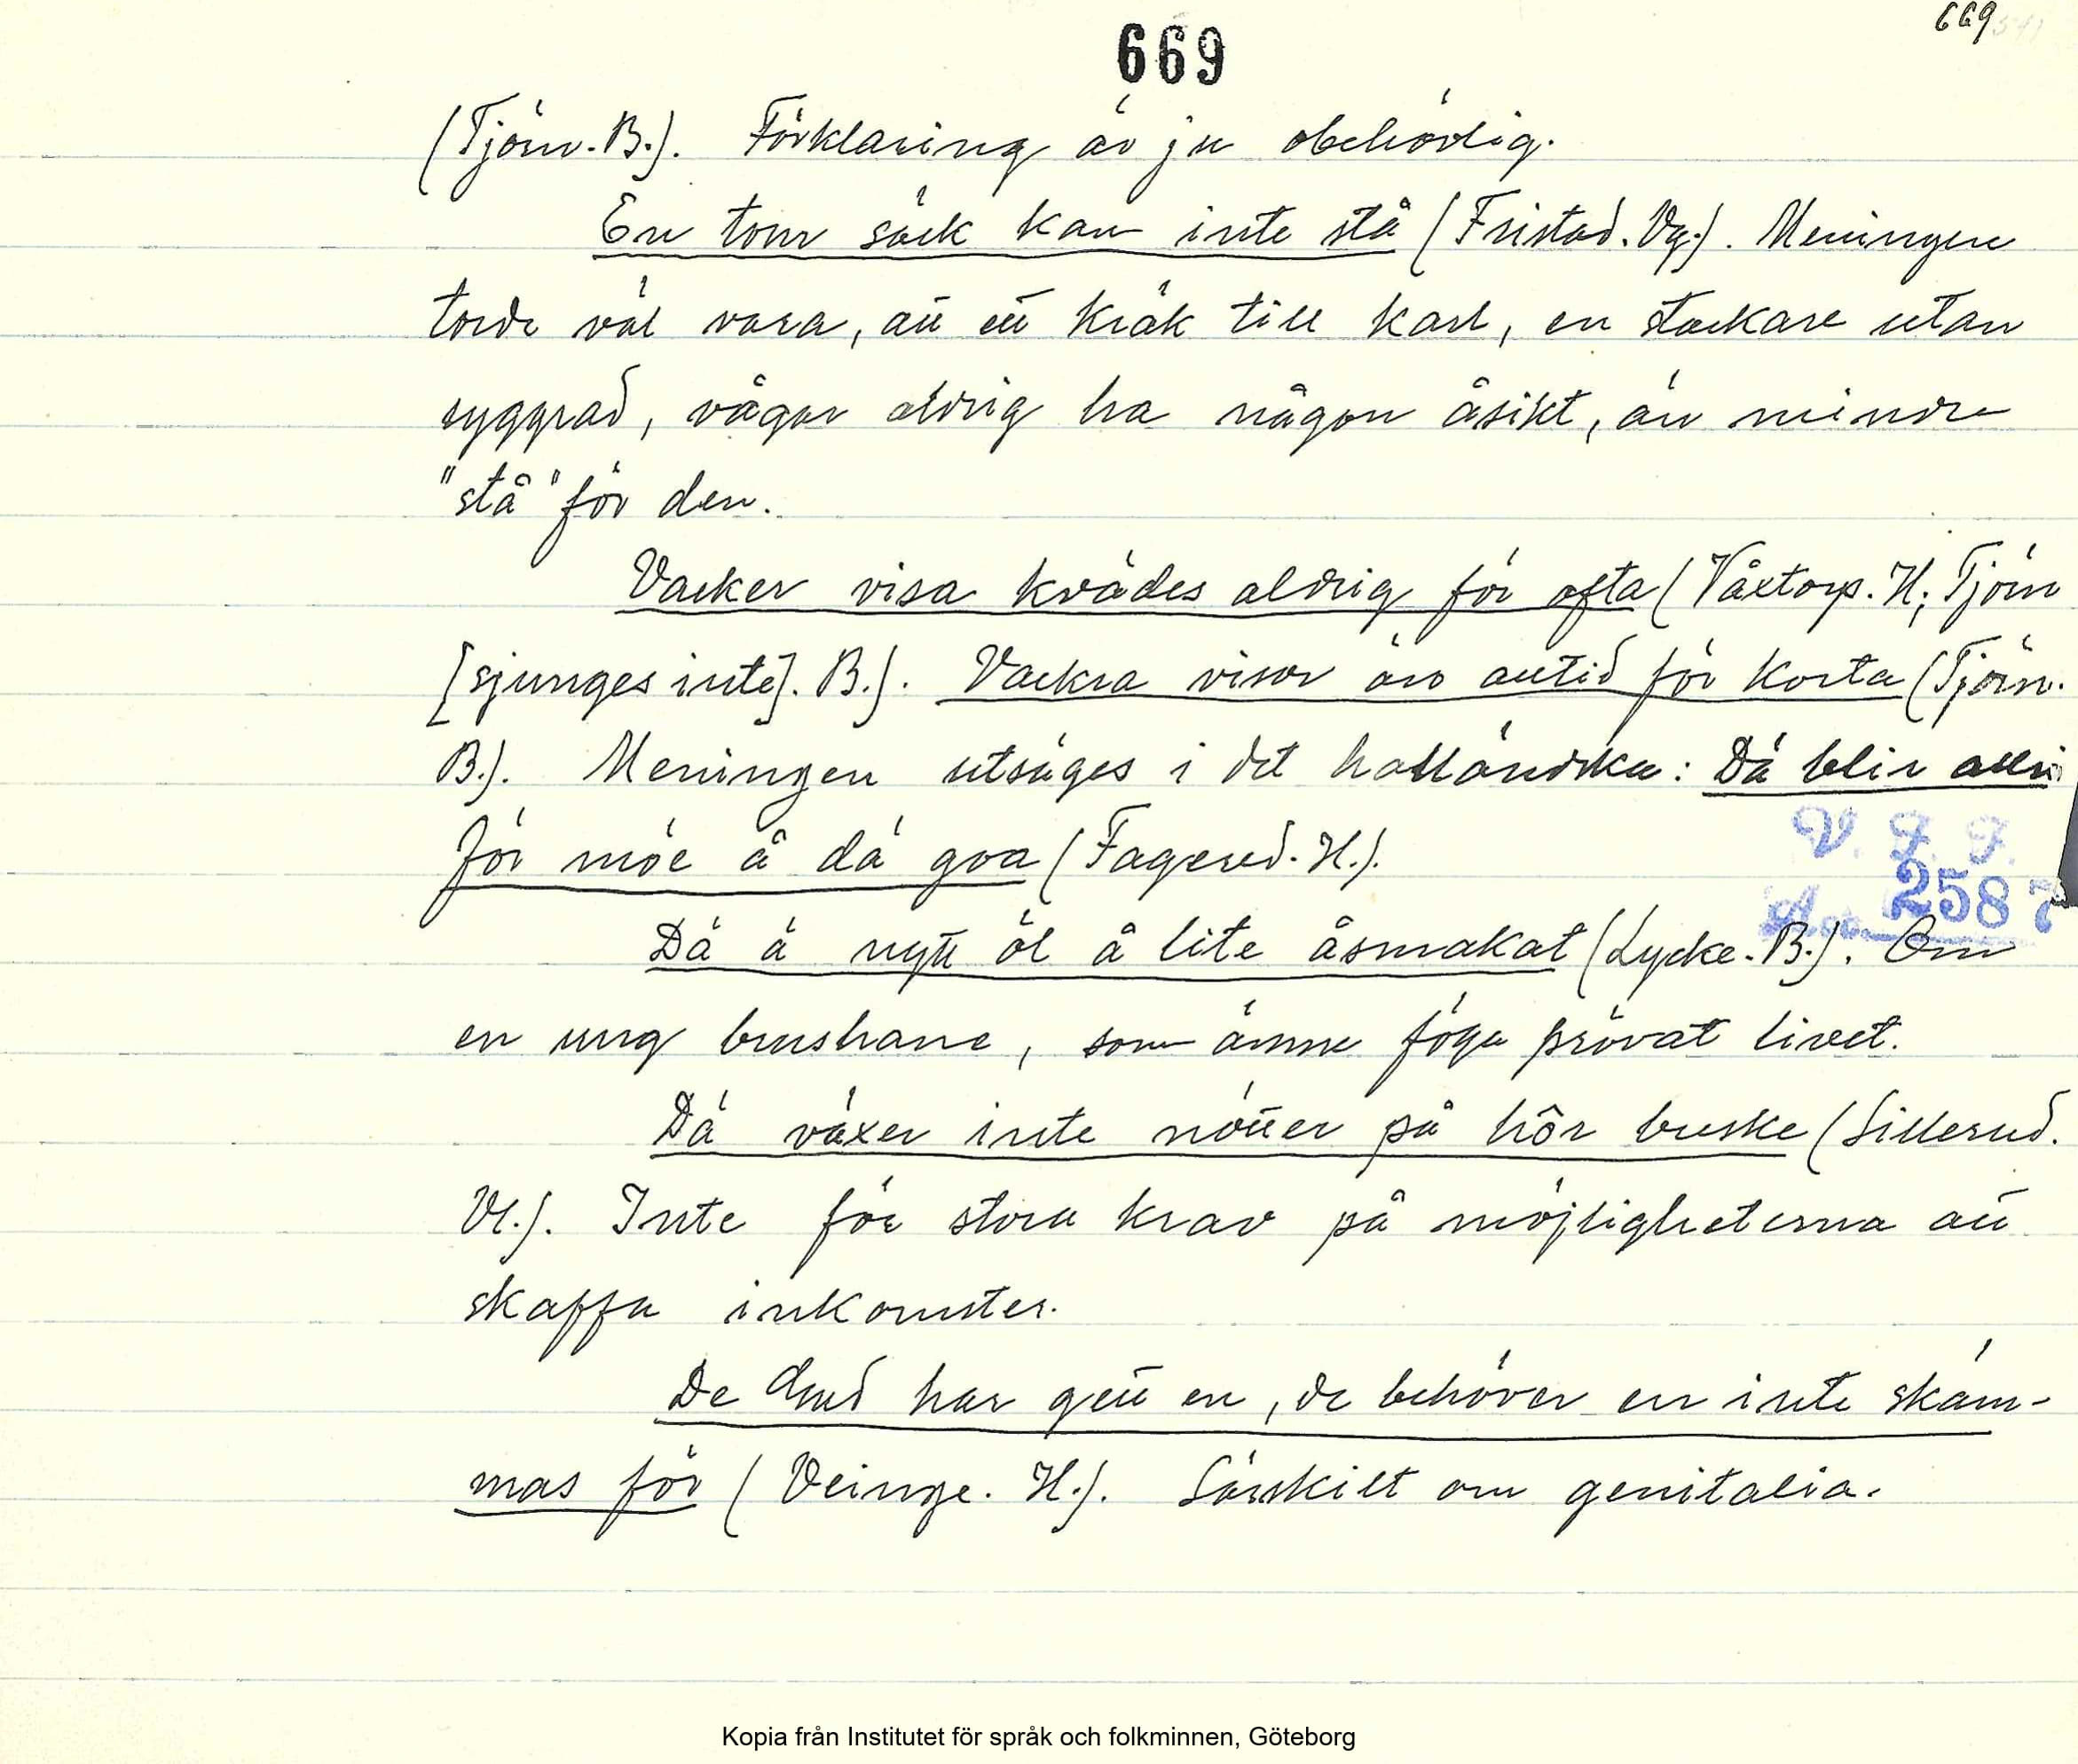 669
669
(Tjörn. B.). Förklaring är ju obehövlig.
En tom säck kan inte stå (Fristad. Vg.). Meningen
torde väl vara, att ett kräk till karl, en stackare utan
ryggrad, vågar aldrig ha någon åsikt, än mindre
"stå" för den.
Vacker visa kvädes aldrig för ofta (Våxtorp. H; Tjörn
[sjunges inte]. B.). Vackra visor äro alltid för korta (Tjörn.
B.). Meningen utsäges i det halländska: Dä blir alli
för möe å dä goa (Fagered. H.).
V. F. F.
Acc. 2587
Dä ä nytt öl å lite åsmakat (Lycke. B.). Om
en ung brushane, som ännu föga prövat livet.
Dä växer inte nötter på hôr buske (Sillerud.
Vl.). Inte för stora krav på möjligheterna att
skaffa inkomster.
De Gud har gett en, de behöver en inte skäm-
mas för (Veinge. H.). Särskilt om genitalia.
Kopia från Institutet för språk och folkminnen, Göteborg